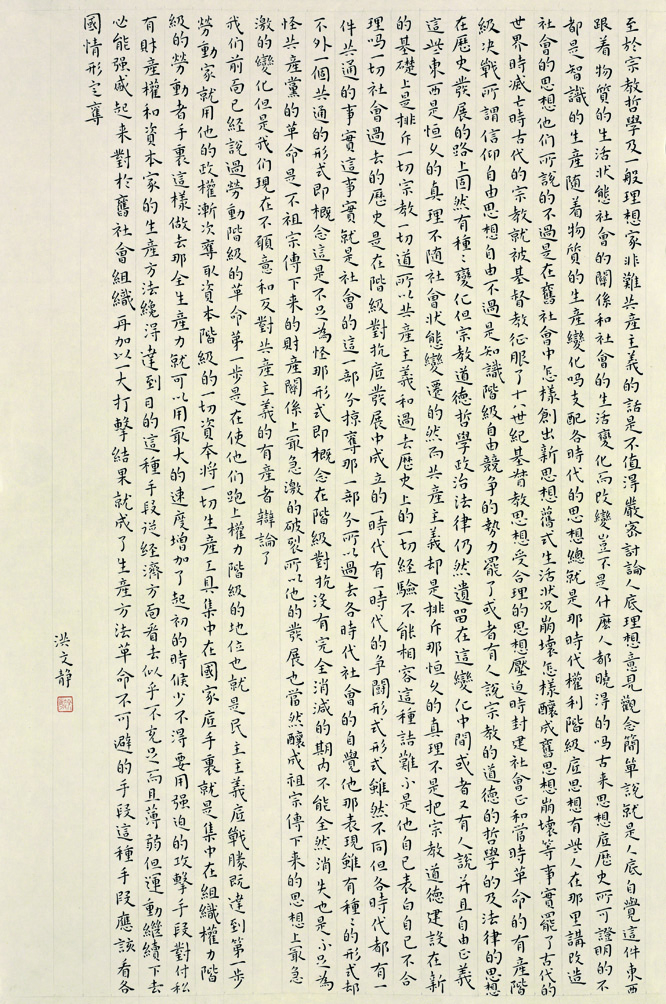 至於宗教哲學及一般理想家非難共產主義的話是不值得嚴密討論人底理想意見觀念簡單說就是人底自覺這件東西
跟着物質的生活狀態社會的關係和社會的生活變化而改變豈不是什麼人都曉得的嗎古來思想底歷史所可證明的不
都是智識的生產隨着物質的生產變化嗎支配各時代的思想總就是那時代權利階級底思想有些人在那里講改造
社會的思想他們所說的不過是在舊社會中怎樣創出新思想舊式生活狀况崩壞怎樣釀成舊思想崩壞等事實罷了古代的
世界時滅亡時古代的宗教就被基督教征服了十八世紀基督教思想受合理的思想壓迫時封建社會正和當時革命的有產階
級决戰所謂信仰自由思想自由不過是知識階級自由競争的勢力罷了或者有人說宗教的道德的哲學的及法律的思想
在歷史發展的路上固然有種〻變化但宗教道德哲學政治法律仍然遺留在這變化中間或者又有人說并且自由正義
這些東西是恒久的真理不隨社會狀態變遷的然而共產主義却是排斥那恒久的真理不是把宗教道德建設在新
的基礎上是排斥一切宗教一切道所以共產主義和過去歷史上的一切經驗不能相容這種詰難不是他自己表白自己不合
理嗎一切社會過去的歷史是在階級對抗底發展中成立的一時代有一時代的争鬭形式形式雖然不同但各時代都有一
件共通的事實這事實就是社會的這一部分掠奪那一部分所以過去各時代社會的自覺他那表現雖有種〻的形式却
不外一個共通的形式即概念這是不足為怪那形式即概念在階級對抗没有完全消滅的期内不能全然消失也是不足為
怪共產黨的革命是不祖宗傳下来的財產關係上最急激的破裂所以他的發展也當然釀成祖宗傳下来的思想上最急
激的變化但是我們現在不願意和反對共產主義的有產者辯論了
我们前面已經說過勞動階級的革命第一步是在使他们跑上權力階級的地位也就是民主主義底戰勝既達到第一步
勞動家就用他的政權漸次奪取資本階級的一切資本將一切生產工具集中在國家底手裏就是集中在組織權力階
級的勞動者手裏這樣做去那全生產力就可以用最大的速度增加了起初的時候少不得要用强迫的攻擊手段對付私
有財產權和資本家的生產方法纔得達到目的這種手段從經濟方面看去似乎不充足而且薄弱但運動繼續下去
必能强盛起来對於舊社會組織再加以一大打擊結果就成了生產方法革命不可避的手段這種手段應該看各
國情形定奪
洪文静